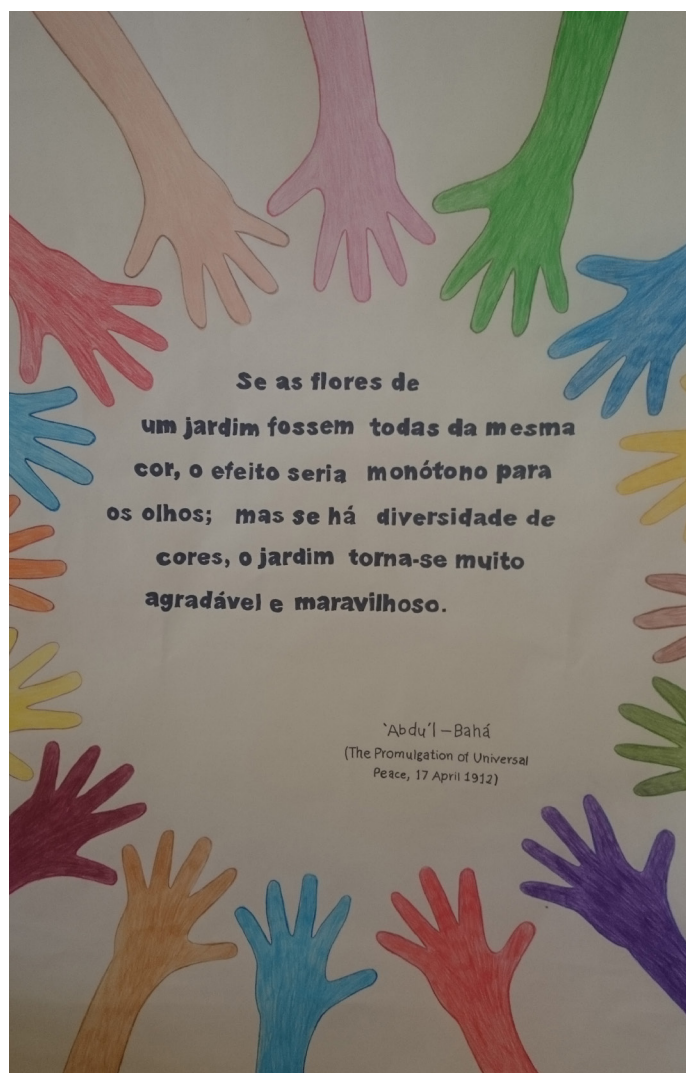 Se as flores de
um jardim fossem todas da mesma
cor, o efeito seria monótono para
os olhos; mas se há diversidade de
cores, o jardim torna-se muito
agradável e maravilhoso.
‘Abdu’l-Bahá
(The Promulgation of Universal
Peace, 17 April 1912)